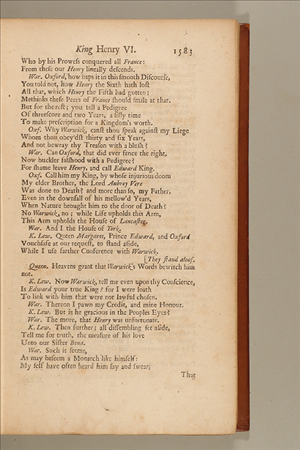 King Henry VI. 1583
Who by his Prowess conquered all France:
From these our Henry lineally descends.
War. Oxford, how haps it in this smooth Discourse,
You told not, how Henry the Sixth hath lost
All that, which Henry the Fifth had gotten:
Methinks these Peers of France should smile at that.
But for the rest; you tell a Pedigree
Of threescore and two Years, a silly time
To make prescription for a Kingdom's worth.
Oxf. Why Warwick, canst thou speak against my Liege
Whom thou obey'dst thirty and six Years,
And not bewray thy Treason with a blush?
War. Can Oxford, that did ever fence the right,
Now buckler falshood with a Pedigree?
For shame leave Henry, and call Edward King.
Oxf. Call him my King, by whose injurious doom
My elder Brother, the Lord Aubrey Vere
Was done to Death? and more than so, my Father,
Even in the downfall of his mellow'd Years,
When Nature brought him to the door of Death?
No Warwick, no; while Life upholds this Arm,
This Arm upholds the House of Lancaster.
War. And I the House of York.
K. Lew. Queen Margaret, Prince Edward, and Oxford
Vouchsafe at our request, to stand aside,
While I use farther Conference with Warwick.
[They stand aloof.
Queen. Heavens grant that Warwick's Words bewitch him
not.
K. Lew. Now Warwick, tell me even upon thy Conscience,
Is Edward your true King? for I were loath
To link with him that were not lawful chosen.
War. Thereon I pawn my Credit, and mine Honour.
K. Lew. But is he gracious in the Peoples Eyes?
War. The more, that Henry was unfortunate.
K. Lew. Then further; all dissembling set aside,
Tell me for truth, the measure of his love
Unto our Sister Bona.
War. Such it seems,
As may beseem a Monarch like himself:
My self have often heard him say and swear,
That